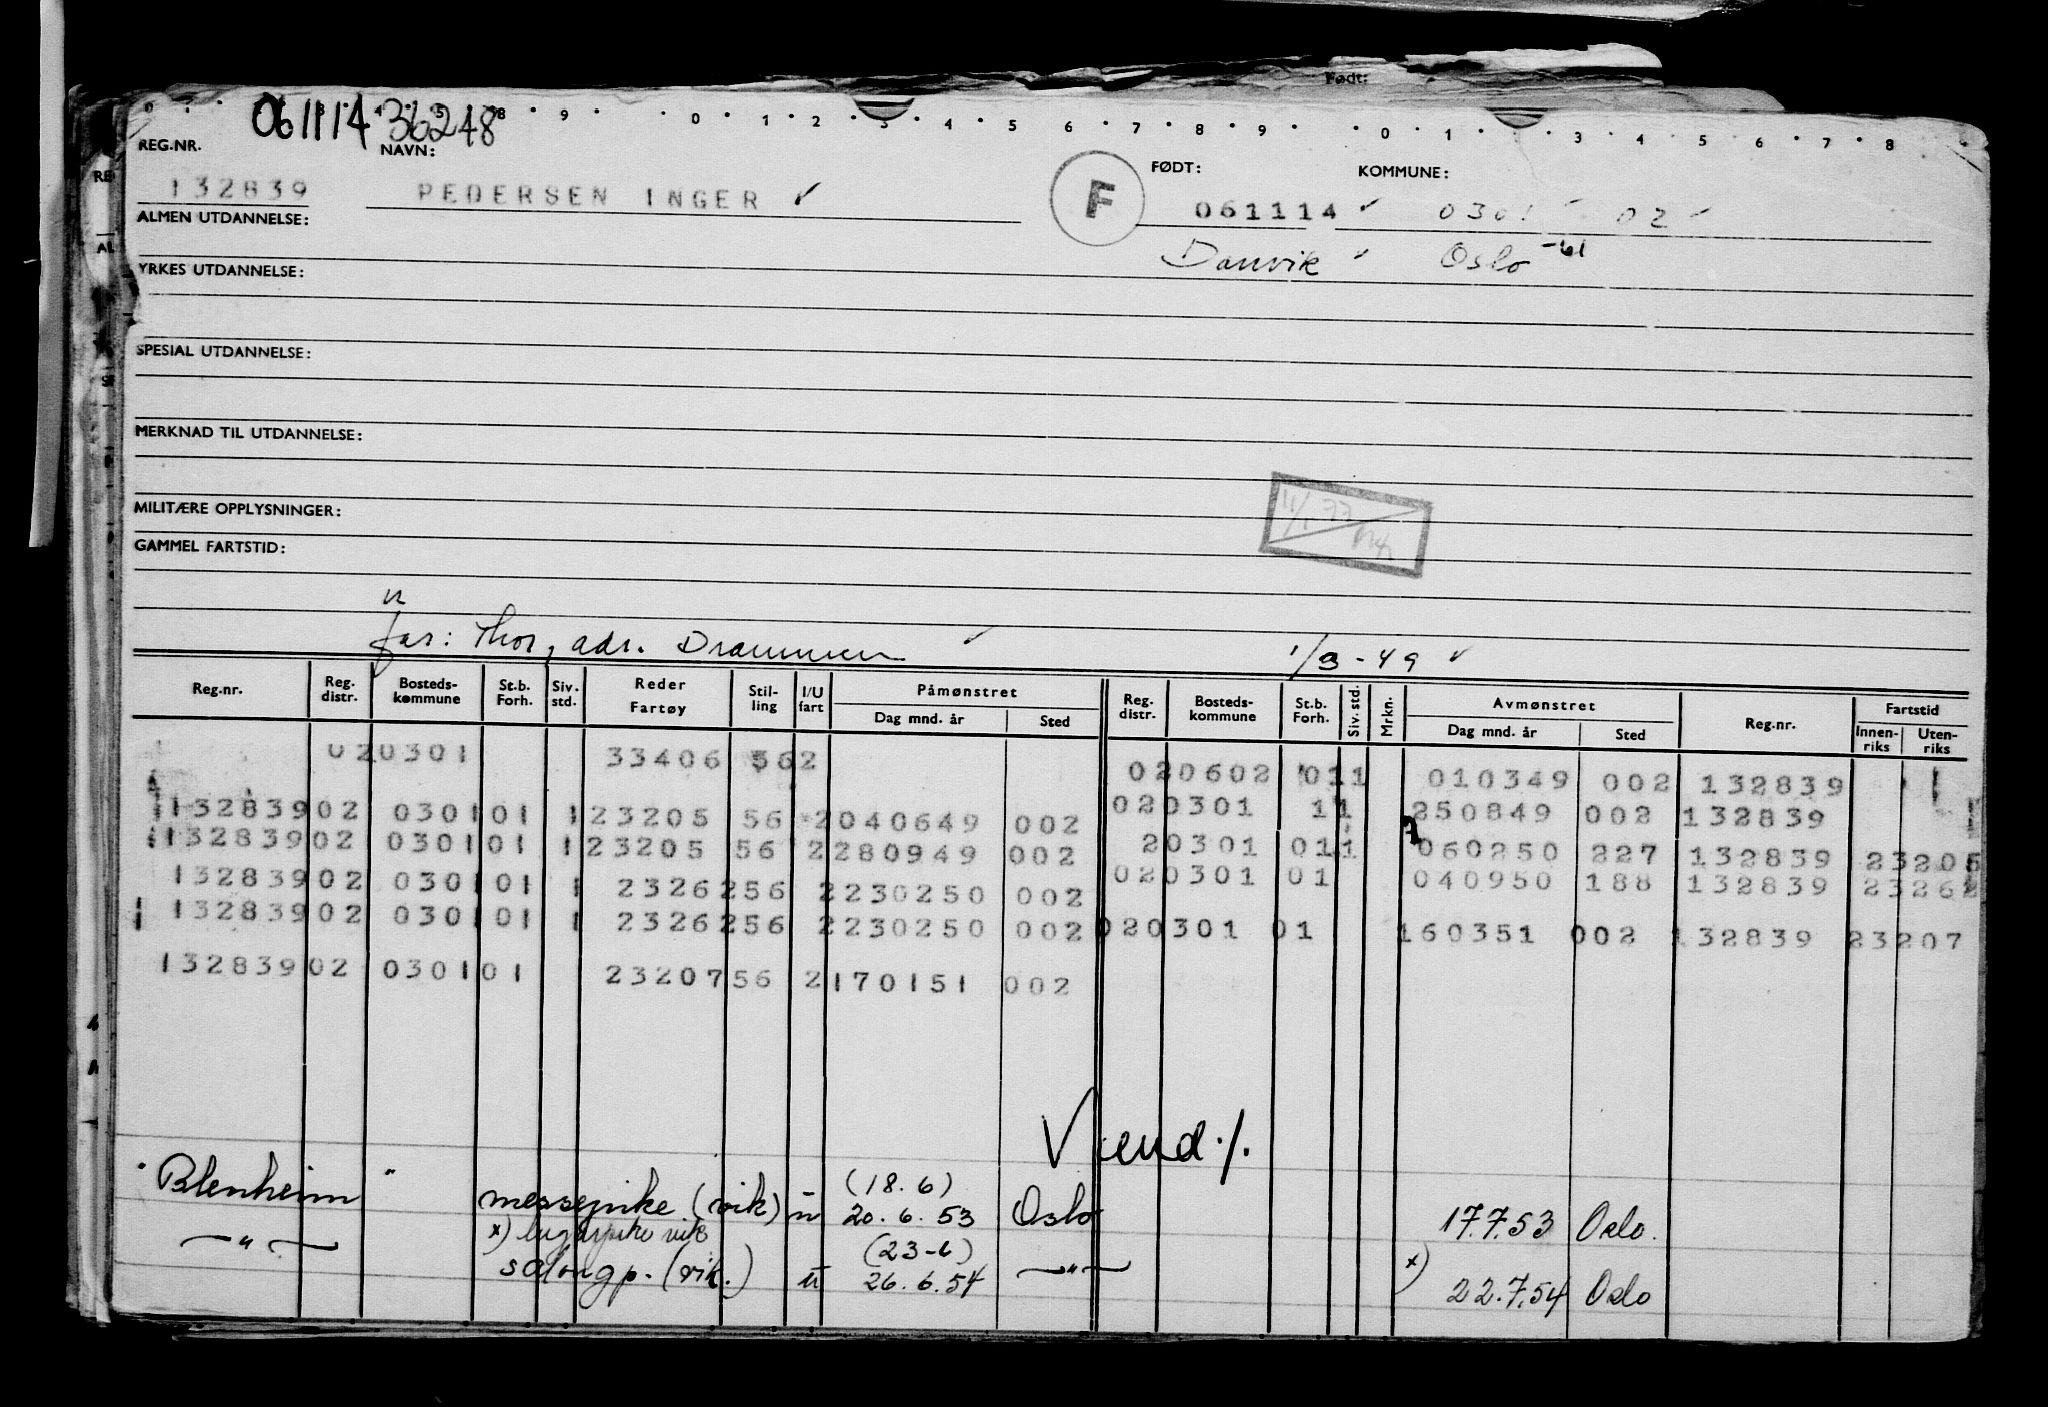 Født:
061114 36248
REG.NR. NAVN: FØDT: KOMMUNE:
132839 PEDERSEN INGER F 061114 0301 02
Danvik Oslo -61
ALMEN UTDANNELSE:
YRKES UTDANNELSE:
SPESIAL UTDANNELSE:
MERKNAD TIL UTDANNELSE:
MILITÆRE OPPLYSNINGER:
GAMMEL FARTSTID:
11/1 77
far: Thor, adr. Drammen 1/3-49
Reg.nr. Reg. distr. Bosteds-kommune St.b. Forh. Siv. std. Reder Fartøy Stil-ling I/U fart Påmønstret Dag mnd. år Sted Reg. distr. Bosteds-kommune St.b. Forh. Siv. std. Mrkn. Avmønstret Dag mnd. år Sted Reg.nr. Fartstid Innen-riks Uten-riks
020301 33406 562 020602 011 010349 002 132839
132839 02 0301 01 1 23205 56 2 040649 002 020301 11 250849 002 132839
132839 02 0301 01 1 23205 56 2 280949 002 20301 011 060250 227 132839 23205
132839 02 0301 01 1 23262 56 2 230250 002 020301 01 040950 188 132839 23262
132839 02 0301 01 1 23262 56 2 230250 002 020301 01 160351 002 132839 23207
132839 02 0301 01 23207 56 2 170151 002
Vend ./.
"Blenheim" messepike (vik) u (18.6) 20.6.53 Oslo 17.7.53 Oslo.
x) lugarpike vik
—"— salongp. (vik.) u (23-6) 26.6.54 —"— x) 22.7.54 Oslo